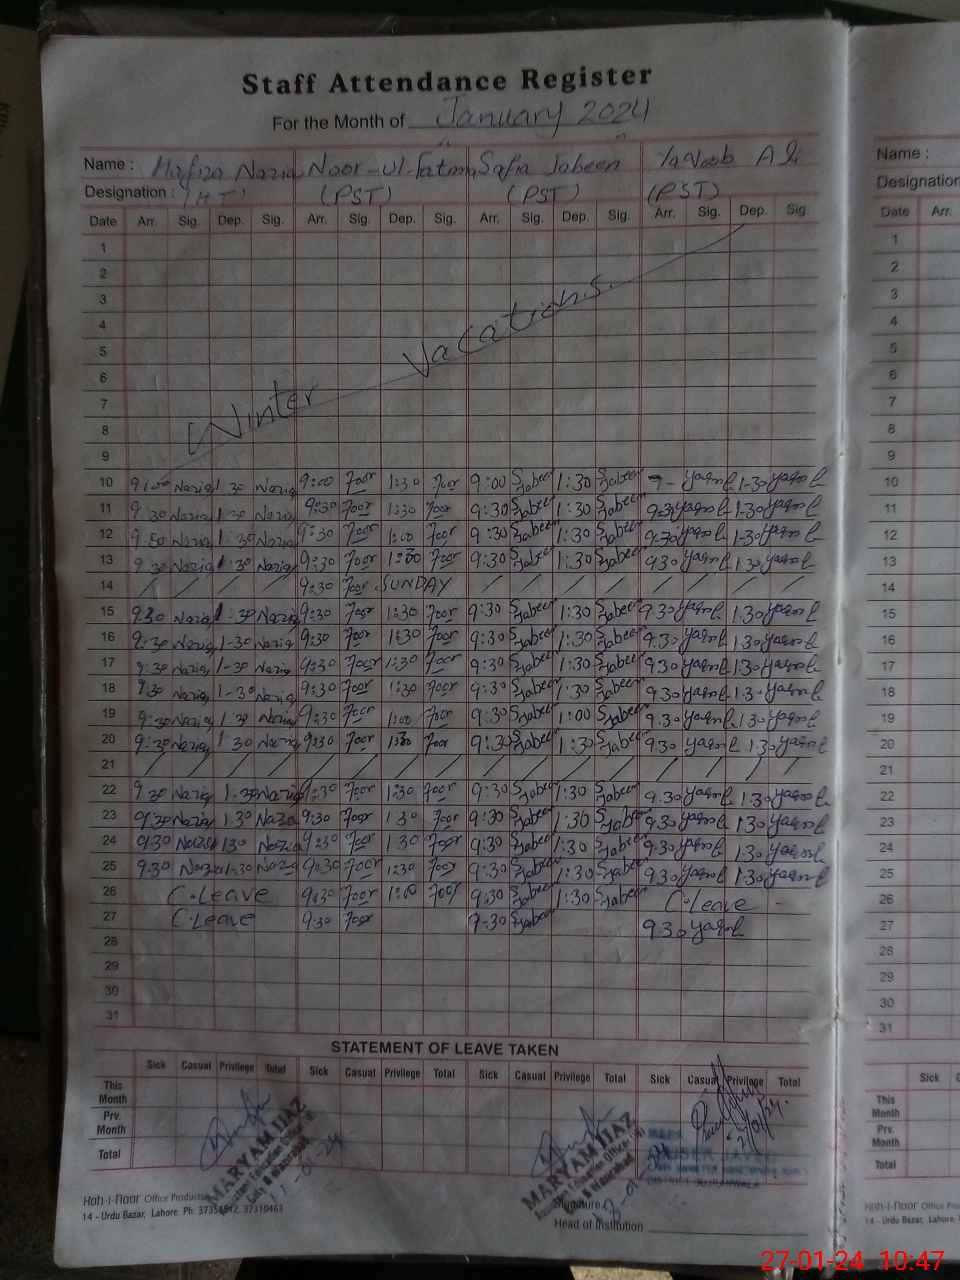 Staff Attendance Register
For the Month of January 2024
Name : Hafiza Nazia Noor-ul-Fatma Safia Jabeen Yaqoob Ali
Name :
Designation : (PST) (PST) (PST)
Designation
Date Arr. Sig. Dep. Sig. Arr. Sig. Dep. Sig. Arr. Sig. Dep. Sig. Arr. Sig. Dep. Sig.
Date Arr.
1
2
3
4
5
6
7
8
9
Winter Vacations.
10 9:00 Nazia 1:30 Nazia 9:00 Noor 1:30 Noor 9:00 SJabeen 1:30 SJabeen 9- Yaqoob 1-30 Yaqoob
11 9:30 Nazia 1:30 Nazia 9:30 Noor 1:30 Noor 9:30 SJabeen 1:30 SJabeen 9:30 Yaqoob 1-30 Yaqoob
12 9:30 Nazia 1:30 Nazia 9:30 Noor 1:00 Noor 9:30 SJabeen 1:30 SJabeen 9:30 Yaqoob 1-30 Yaqoob
13 9:30 Nazia 1:30 Nazia 9:30 Noor 1:30 Noor 9:30 SJabeen 1:30 SJabeen 9.30 Yaqoob 1.30 Yaqoob
14 9:30 Noor SUNDAY
15 9:30 Nazia 1:30 Nazia 9:30 Noor 1:30 Noor 9:30 SJabeen 1:30 SJabeen 9.30 Yaqoob 1.30 Yaqoob
16 9:30 Nazia 1-30 Nazia 9:30 Noor 1:30 Noor 9:30 SJabeen 1:30 SJabeen 9.30 Yaqoob 1.30 Yaqoob
17 9:30 Nazia 1-30 Nazia 9:30 Noor 1:30 Noor 9:30 SJabeen 1:30 SJabeen 9.30 Yaqoob 1.30 Yaqoob
18 9:30 Nazia 1-30 Nazia 9:30 Noor 1:30 Noor 9:30 SJabeen 1:30 SJabeen 9.30 Yaqoob 1.30 Yaqoob
19 9:30 Nazia 1:30 Nazia 9:30 Noor 1:00 Noor 9:30 SJabeen 1:00 SJabeen 9.30 Yaqoob 1.30 Yaqoob
20 9:30 Nazia 1:30 Nazia 9:30 Noor 1:30 Noor 9:30 SJabeen 1:30 SJabeen 9.30 Yaqoob 1.30 Yaqoob
21
22 9.30 Nazia 1.30 Nazia 9:30 Noor 1:30 Noor 9:30 SJabeen 1:30 SJabeen 9.30 Yaqoob 1.30 Yaqoob
23 9:30 Nazia 1:30 Nazia 9:30 Noor 1:30 Noor 9:30 SJabeen 1:30 SJabeen 9.30 Yaqoob 1.30 Yaqoob
24 9:30 Nazia 1:30 Nazia 9:30 Noor 1:30 Noor 9:30 SJabeen 1:30 SJabeen 9.30 Yaqoob 1.30 Yaqoob
25 9.30 Nazia 1-30 Nazia 9:30 Noor 1:30 Noor 9:30 SJabeen 1:30 SJabeen 9.30 Yaqoob 1.30 Yaqoob
26 C.Leave 9:30 Noor 1:00 Noor 9:30 SJabeen 1:30 SJabeen C.Leave
27 C.Leave 9:30 Noor 9:30 SJabeen 9.30 Yaqoob
28
29
30
31
1
2
3
4
5
6
7
8
9
10
11
12
13
14
15
16
17
18
19
20
21
22
23
24
25
26
27
28
29
30
31
STATEMENT OF LEAVE TAKEN
Sick Casual Privilege Total Sick Casual Privilege Total Sick Casual Privilege Total Sick Casual Privilege Total
Sick
This Month
Prv. Month
Total
This Month
Prv. Month
Total
MARYAM IJAZ
MARYAM IJAZ
Signature
Head of Institution
Koh-i-Noor Office Products
14 - Urdu Bazar, Lahore. Ph: 37310463
14 - Urdu Bazar, Lahore.
27-01-24 10:47